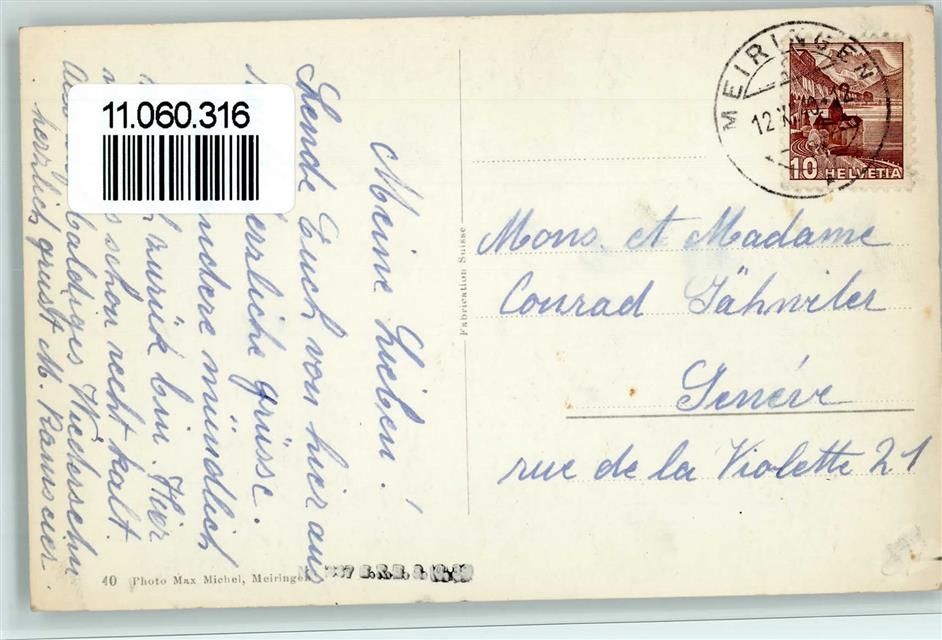 11.060.316
Meine Lieben!
Sende Euch von hier aus
herzliche Grüsse.
mündlich
zurück bin. Hier
schon recht kalt.
baldiges Wiedersehn
herzlich grüsst M. Ramseier.
Fabrication Suisse
MEIRINGEN
12
10 HELVETIA
Mons. et Madame
Conrad Jähwiler
Genéve
rue de la Violette 21
40 Photo Max Michel, Meiringen